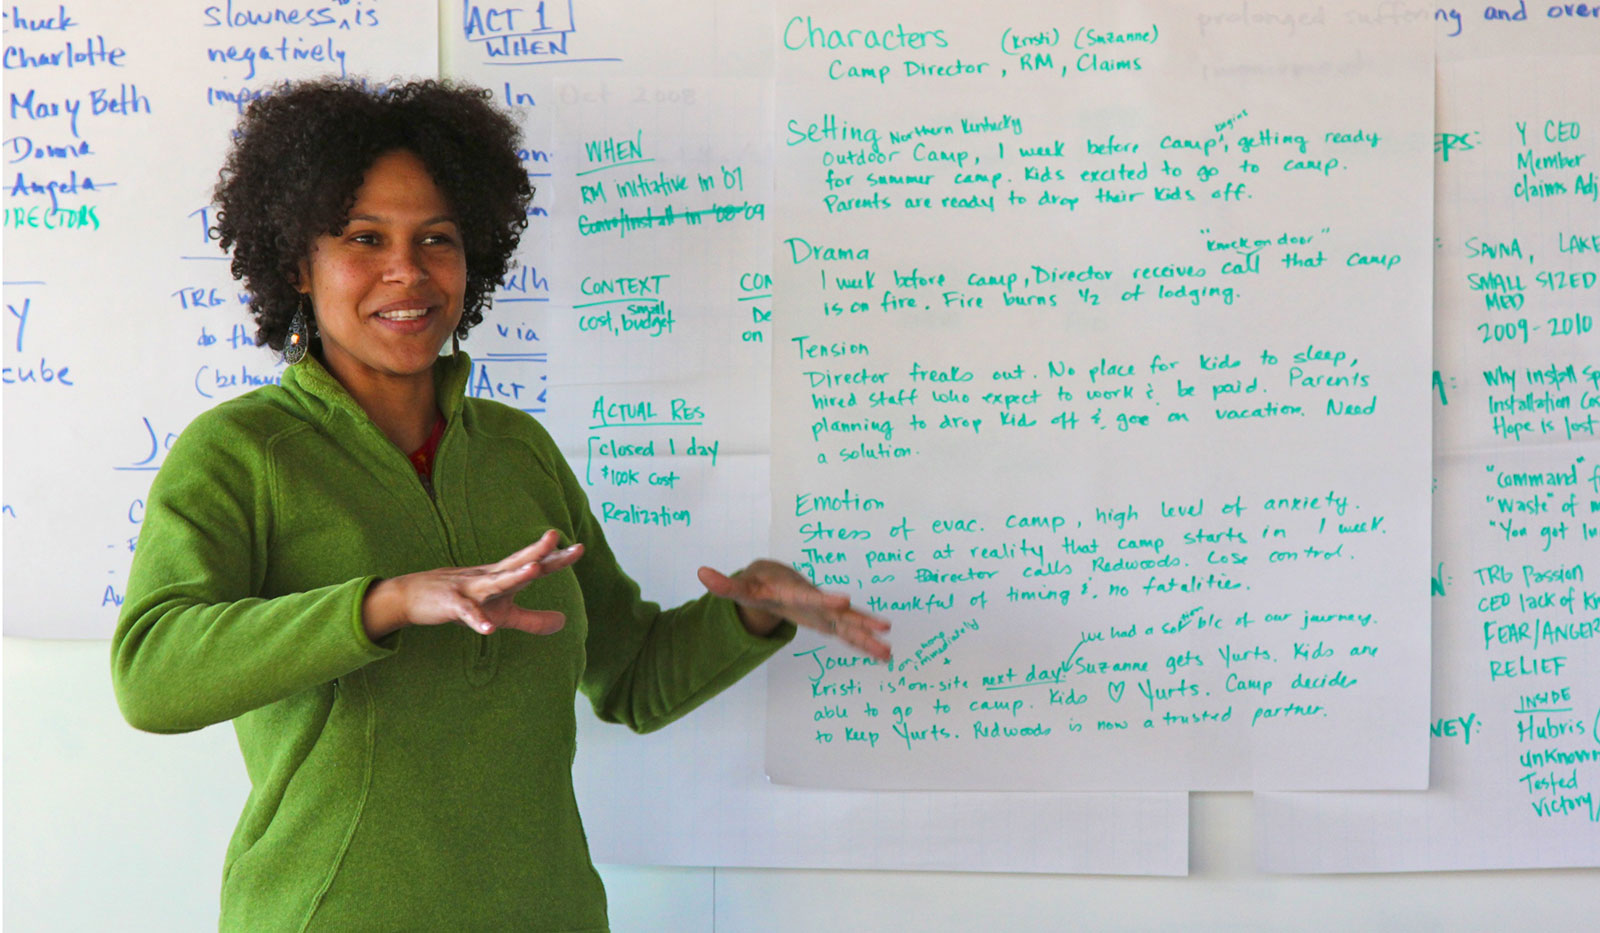 Chuck
Charlotte
Mary Beth
Donna
Angela
slowness is
negatively
TRG
do the
cube
ACT 1
WHEN
In
via
Act 2
Oct 2008
WHEN
RM initiative in '07
CONTEXT
small
cost, budget
ACTUAL RES
closed 1 day
$100K cost
Realization
on
Characters (Kristi) (Suzanne)
Camp Director, RM, Claims
Setting Northern Kentucky
begins
Outdoor Camp, 1 week before camp, getting ready
for summer camp. Kids excited to go to camp.
Parents are ready to drop their kids off.
Drama
"knock on door"
1 week before camp, Director receives call that camp
is on fire. Fire burns 1/2 of lodging.
Tension
Director freaks out. No place for kids to sleep,
hired staff who expect to work & be paid. Parents
planning to drop kids off & goe on vacation. Need
a solution.
Emotion
Stress of evac. camp, high level of anxiety.
Then panic at reality that camp starts in 1 week.
low, as Director calls Redwoods. Lose control.
thankful of timing & no fatalities.
we had a solution b/c of our journey.
on phone
immediately
+
Kristi is on-site next day! Suzanne gets Yurts. Kids are
able to go to camp. Kids ♡ Yurts. Camp decides
to keep Yurts. Redwoods is now a trusted partner.
prolonged suffering and over
Y CEO
Member
claims Adj
SAUNA, LAKE
SMALL SIZED
MED
2009-2010
Why install
Installation
Hope is lost
"command"
"Waste" of
"You got
TRG Passion
CEO lack of
FEAR/ANGER
RELIEF
INSIDE
Hubris
unknown
Tested
Victory/